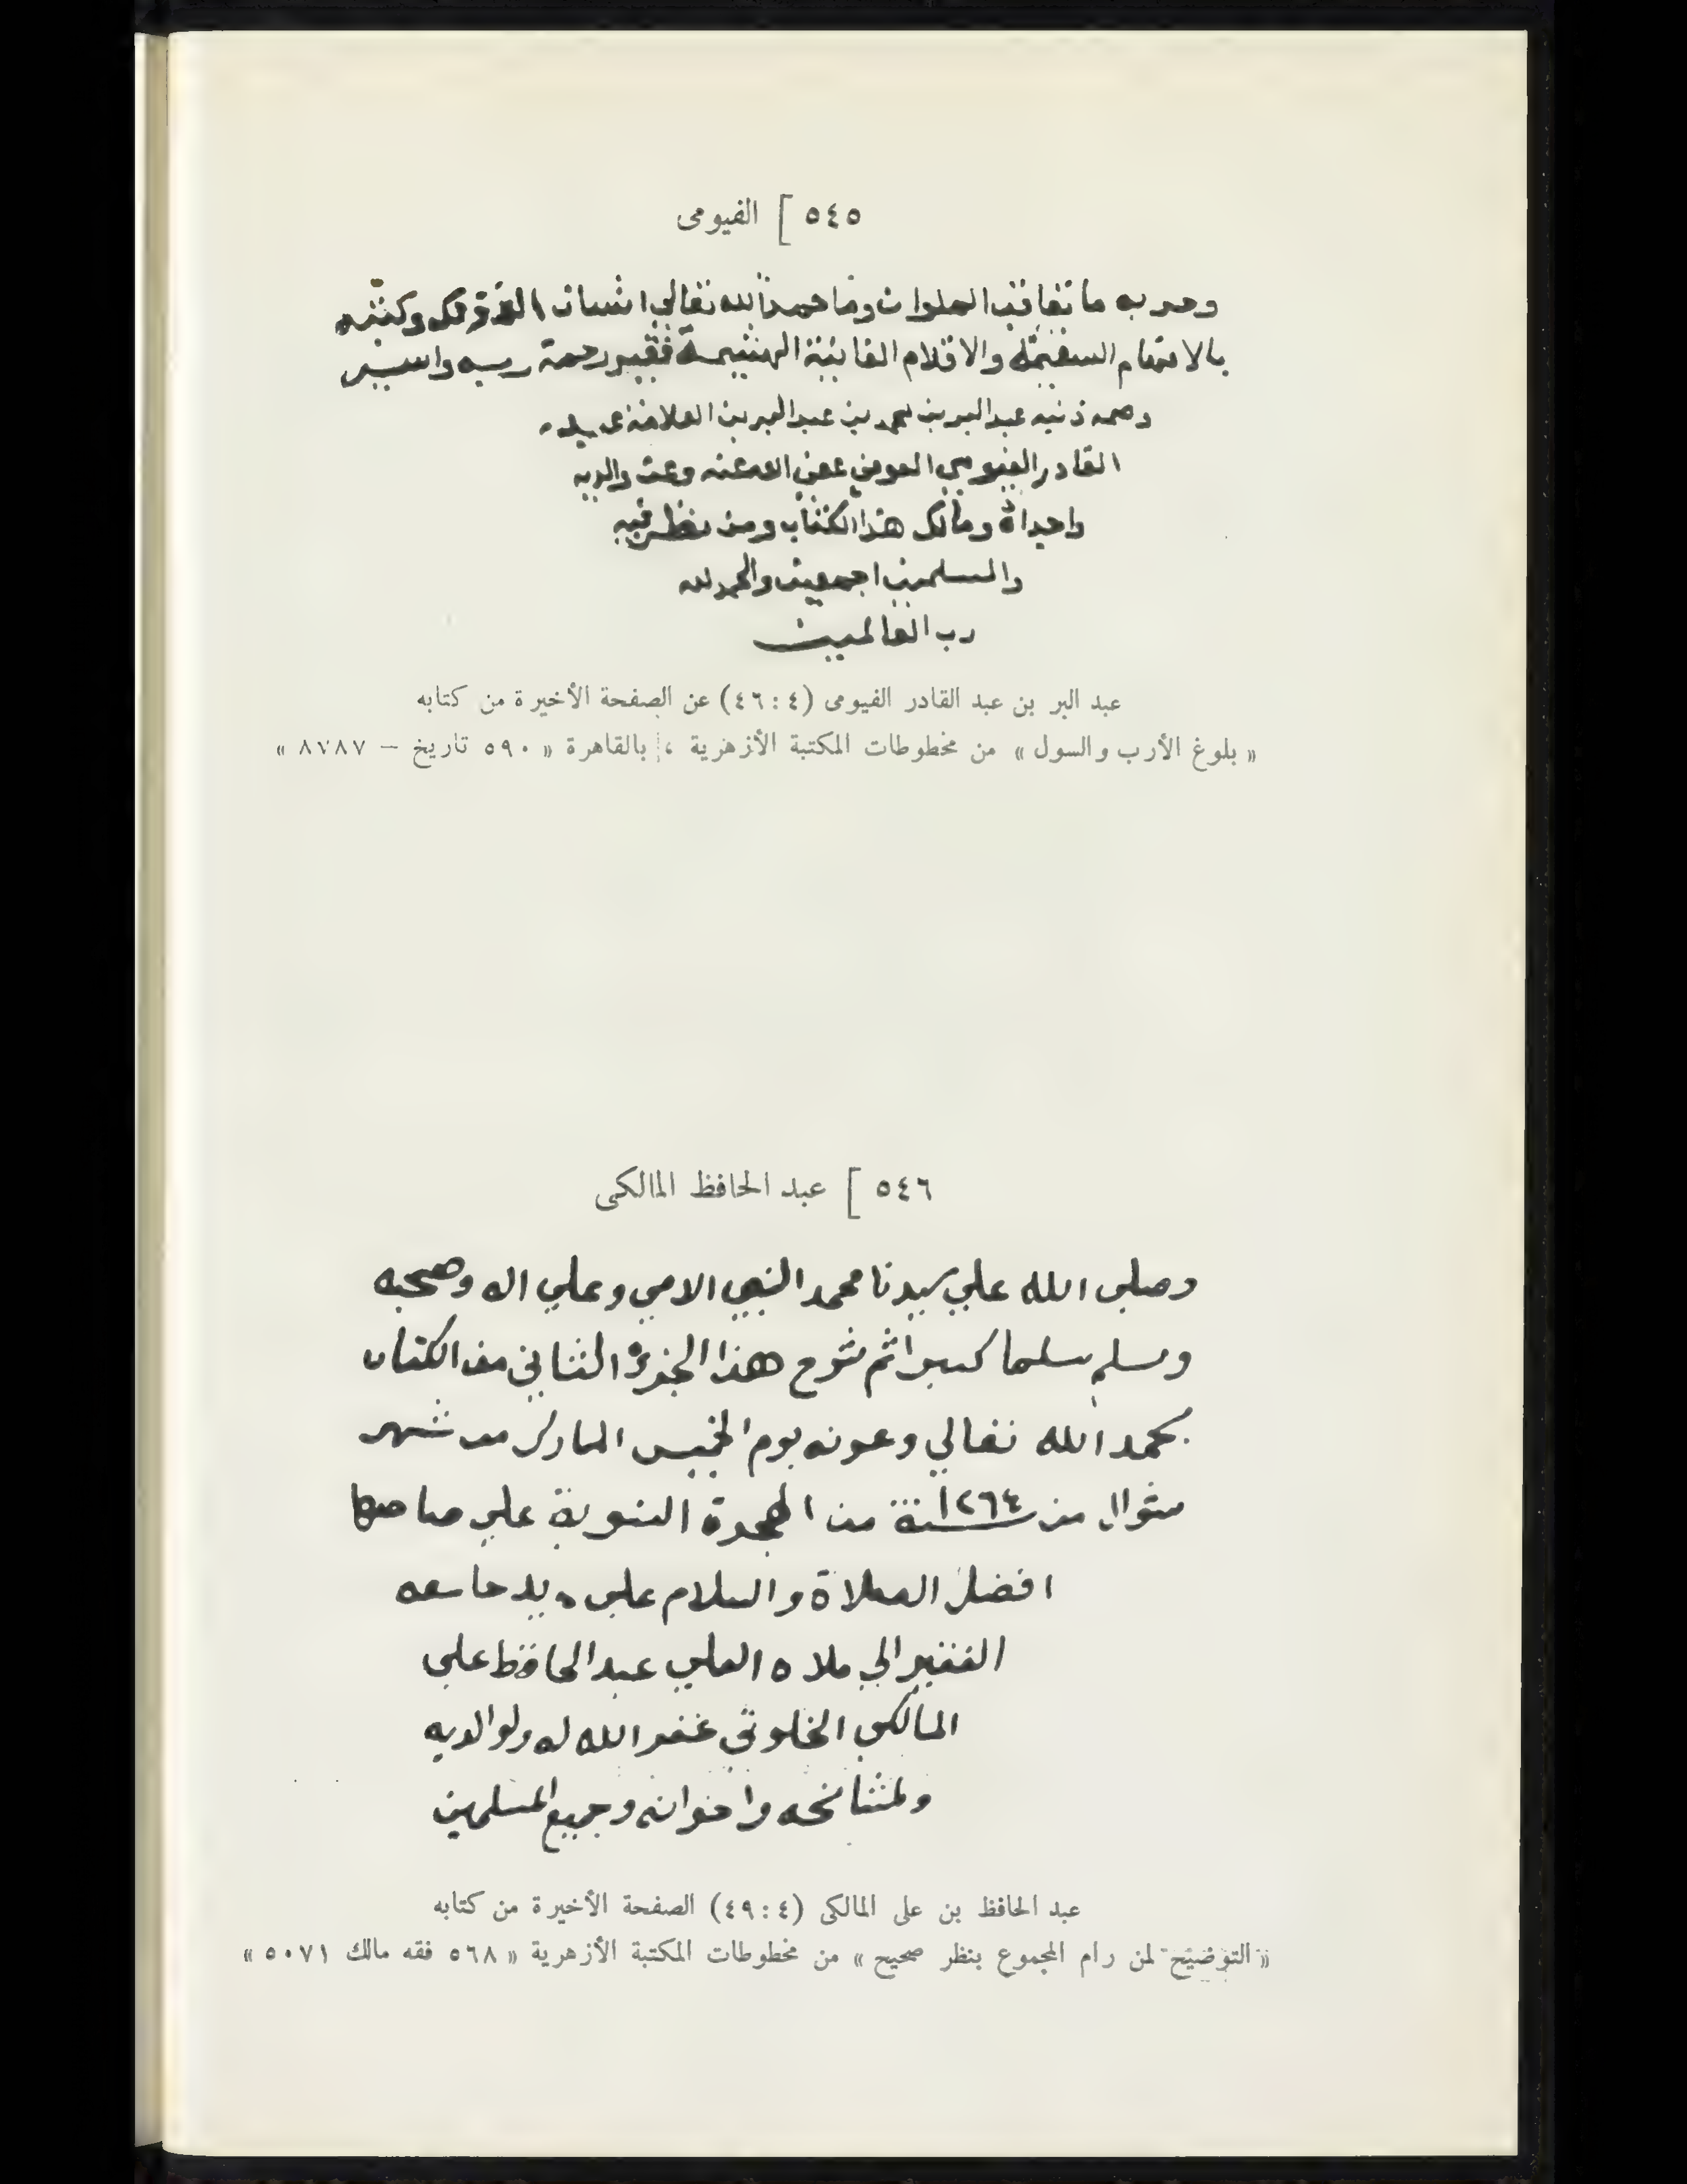 ٥٤٥ ] الفيومى
وحزبه ما تعاقب الملوان وما حمد الله تعالى انسان وكتبه
بالا السقيمة والاقلام الفانية الهشيمة فقير رحمة ربه واسير
وصمة ذنبه عبد البر بن محمد بن عبد البر بن العلامة عبد
القادر الفيومي العوفي عفى الله عنه وعن والديه
واجداده ومالك هذا الكتاب ومن نظر فيه
والمسلمين اجمعين والحمد لله
رب العالمين
عبد البر بن عبد القادر الفيومى (٤ : ٤٦) عن الصفحة الأخيرة من كتابه
« بلوغ الأرب والسول » من مخطوطات المكتبة الأزهرية ، بالقاهرة « ٥٩٠ تاريخ — ٨٧٨٧ »
٥٤٦ ] عبد الحافظ المالكى
وصلى الله علي سيدنا محمد النبي الامي وعلي اله وصحبه
وسلم تسليما كثيرا ثم هذا الجزؤ الثاني من الكتاب
بحمد الله تعالي وعونه يوم الخميس المبارك من شهر
شوال من ١٢٦٤ سنة من الهجرة النبوية علي صاحبها
افضل الصلاة والسلام علي يد جامعه
الفقير الي ملاه العلي عبد الحافظ علي
المالكي الخلوتي غفر الله له ولوالديه
ولمشائخه واخوانه وجميع المسلمين
عبد الحافظ بن على المالكى (٤ : ٤٩) الصفحة الأخيرة من كتابه
« التوضيح لمن رام المجموع بنظر صحيح » من مخطوطات المكتبة الأزهرية « ٥٦٨ فقه مالك ٥٠٧١ »